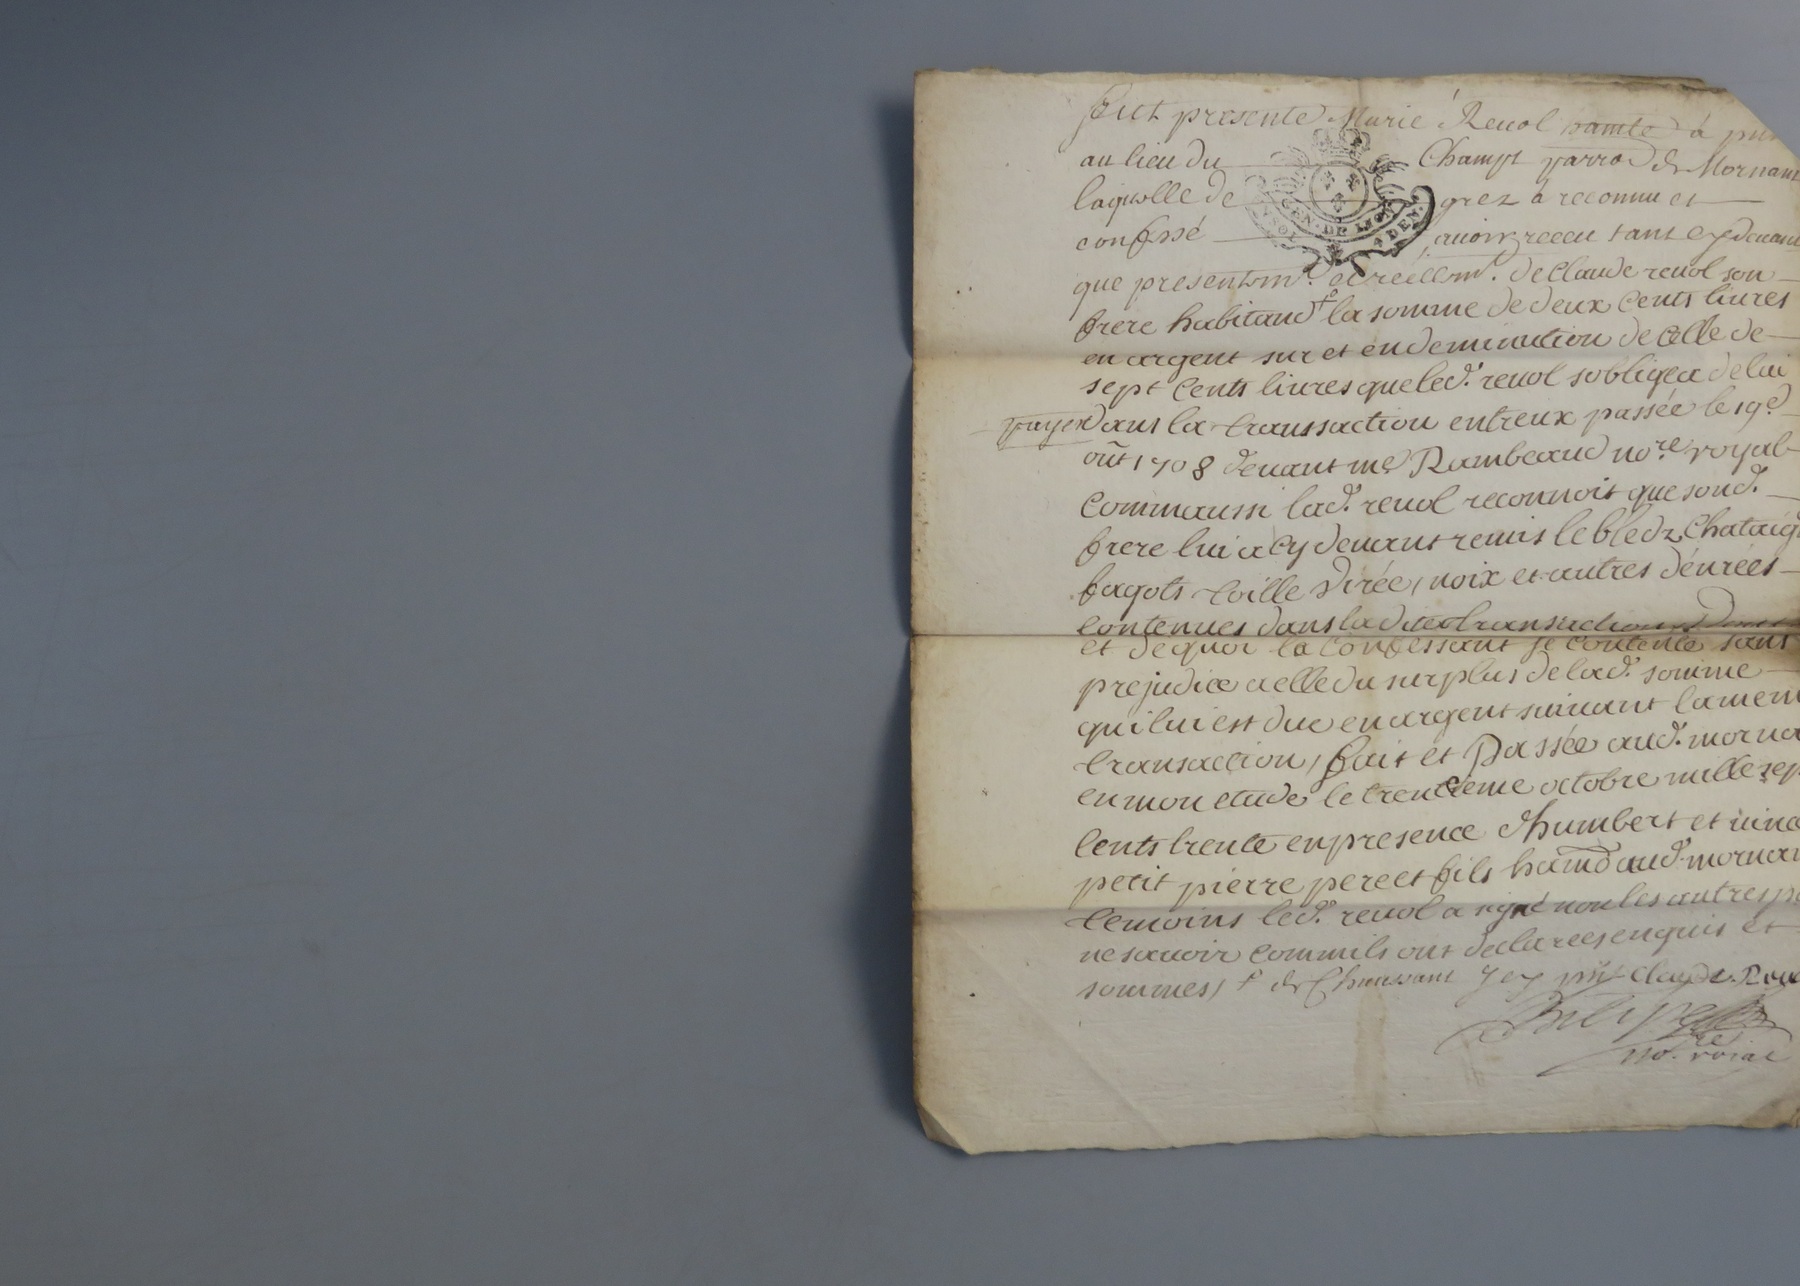 fut presente Marie Revol hante à
au lieu du Champt parro. de Mornant
laquelle de grez a reconnu et
confessé avoir receu tant cy devant
GEN. DE LYON
4 DEN.
que presentemt. et réellemt. de Claude revol son
frere habitand + la somme de deux cents livres
en argent sur et en deminution de celle de
sept cents livres que led. revol sobligea de lui
payer dans la transaction entreux passée le 19e
oût 1708 devant me Rambeaud nore. royal
Commaussi lad. revol reconnoit que sond.
frere lui a cy devant remis le bled, Chataig
fagots toille virée, noix et autres dénrées
contenues dans la ditte transaction
et de quoi la confessant se contente sans
prejudice a elle du surplus de lad. somme
qui lui est due en argent suivant la mem
transaction, fait et Passée aud. morna
en mon etude le trentieme octobre mille sep
Cents trente en presence dhumbert et
petit pierre pere et fils hantd aud. mornan
temoins led. revol a signé non les autres
ne savoir comm ils ont declarées enquis et
sommes, + de Claude
no.re roial